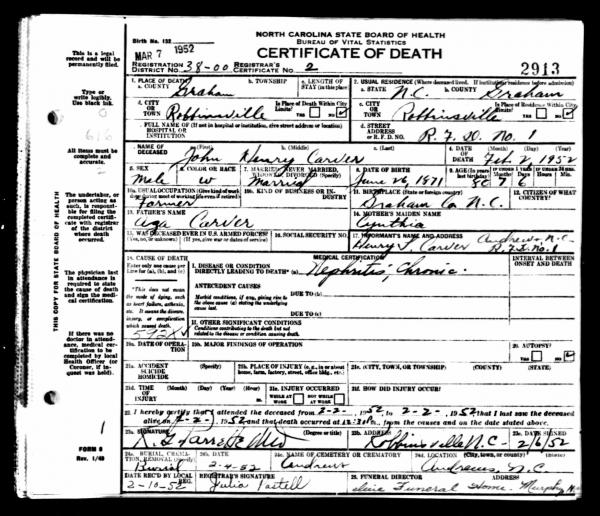 NORTH CAROLINA STATE BOARD OF HEALTH
BUREAU OF VITAL STATISTICS
Birth No. 132
MAR 7 1952
CERTIFICATE OF DEATH
REGISTRATION DISTRICT NO. 38-00 REGISTRAR'S CERTIFICATE NO. 2
2913
This is a legal record and will be permanently filed.
Type or write legibly. Use black ink.
All items must be complete and accurate.
The undertaker, or person acting as such, is responsible for filing the completed certificate with registrar of the district where death occurred.
The physician last in attendance is required to state the cause of death and sign the medical certification.
If there was no doctor in attendance, medical certification to be completed by local Health Officer (or Coroner, if inquest was held)
THIS COPY FOR STATE BOARD OF HEALTH
1
FORM 8
Rev. 1/49
1. PLACE OF DEATH
a. COUNTY Graham
b. TOWNSHIP
c. LENGTH OF STAY (in this place)
2. USUAL RESIDENCE (Where deceased lived. If institution: residence before admission)
a. STATE N.C.
b. COUNTY Graham
d. CITY OR TOWN Robbinsville
Is Place of Death Within City Limits? YES NO
c. CITY OR TOWN Robbinsville
Is Place of Residence Within City Limits? YES NO
f. FULL NAME OF (If not in hospital or institution, give street address or location) HOSPITAL OR INSTITUTION
d. STREET ADDRESS OR R.F.D. NO. R.F.D. No. 1
3. NAME OF DECEASED
a. (First) John
b. (Middle) Henry
c. (Last) Carver
4. DATE OF DEATH (Month) (Day) (Year) Feb. 2, 1952
5. SEX Male
6. COLOR OR RACE W
7. MARRIED, NEVER MARRIED, WIDOWED, DIVORCED (Specify) Married
8. DATE OF BIRTH June 26 1871
9. AGE (In years last birthday) 80 7 6
10a. USUAL OCCUPATION (Give kind of work done during most of working life even if retired) Farmer
10b. KIND OF BUSINESS OR INDUSTRY
11. BIRTHPLACE (State or foreign country) Graham Co. N.C.
12. CITIZEN OF WHAT COUNTRY?
13. FATHER'S NAME
Carver
14. MOTHER'S MAIDEN NAME
Cynthia
15. WAS DECEASED EVER IN U.S. ARMED FORCES? (Yes, no, or unknown) (If yes, give war or dates of service)
16. SOCIAL SECURITY NO.
17. INFORMANT'S NAME AND ADDRESS Andrews, N.C.
Henry T. Carver R.F.D. No. 1
18. CAUSE OF DEATH
Enter only one cause per line for (a), (b), and (c)
MEDICAL CERTIFICATION
INTERVAL BETWEEN ONSET AND DEATH
I. DISEASE OR CONDITION DIRECTLY LEADING TO DEATH* (a) Nephritis, Chronic.
ANTECEDENT CAUSES
Morbid conditions, if any, giving rise to the above cause (a) stating the underlying cause last.
DUE TO (b)
DUE TO (c)
*This does not mean the mode of dying, such as heart failure, asthenia, etc. It means the disease, injury, or complication which caused death.
592X
II. OTHER SIGNIFICANT CONDITIONS
Conditions contributing to the death but not related to the disease or condition causing death.
19a. DATE OF OPERATION
19b. MAJOR FINDINGS OF OPERATION
20. AUTOPSY? YES NO
21a. ACCIDENT SUICIDE HOMICIDE (Specify)
21b. PLACE OF INJURY (e.g., in or about home, farm, factory, street, office bldg., etc.)
21c. (CITY, TOWN, OR TOWNSHIP) (COUNTY) (STATE)
21d. TIME OF INJURY (Month) (Day) (Year) (Hour)
21e. INJURY OCCURRED WHILE AT WORK NOT WHILE AT WORK
21f. HOW DID INJURY OCCUR?
22. I hereby certify that I attended the deceased from 2-2-, 1952, to 2-2-, 1952, that I last saw the deceased alive on 2-2-, 1952, and that death occurred at m., from the causes and on the date stated above.
23a. SIGNATURE (Degree or title)
23b. ADDRESS Robbinsville N.C.
23c. DATE SIGNED 2/6/52
24a. BURIAL, CREMATION, REMOVAL (Specify) Burial
24b. DATE 2-4-52
24c. NAME OF CEMETERY OR CREMATORY Andrews
24d. LOCATION (City, town, or county) (State) Andrews, N.C.
DATE REC'D BY LOCAL REG. 2-10-52
REGISTRAR'S SIGNATURE Julia
25. FUNERAL DIRECTOR ADDRESS Funeral Home. Murphy